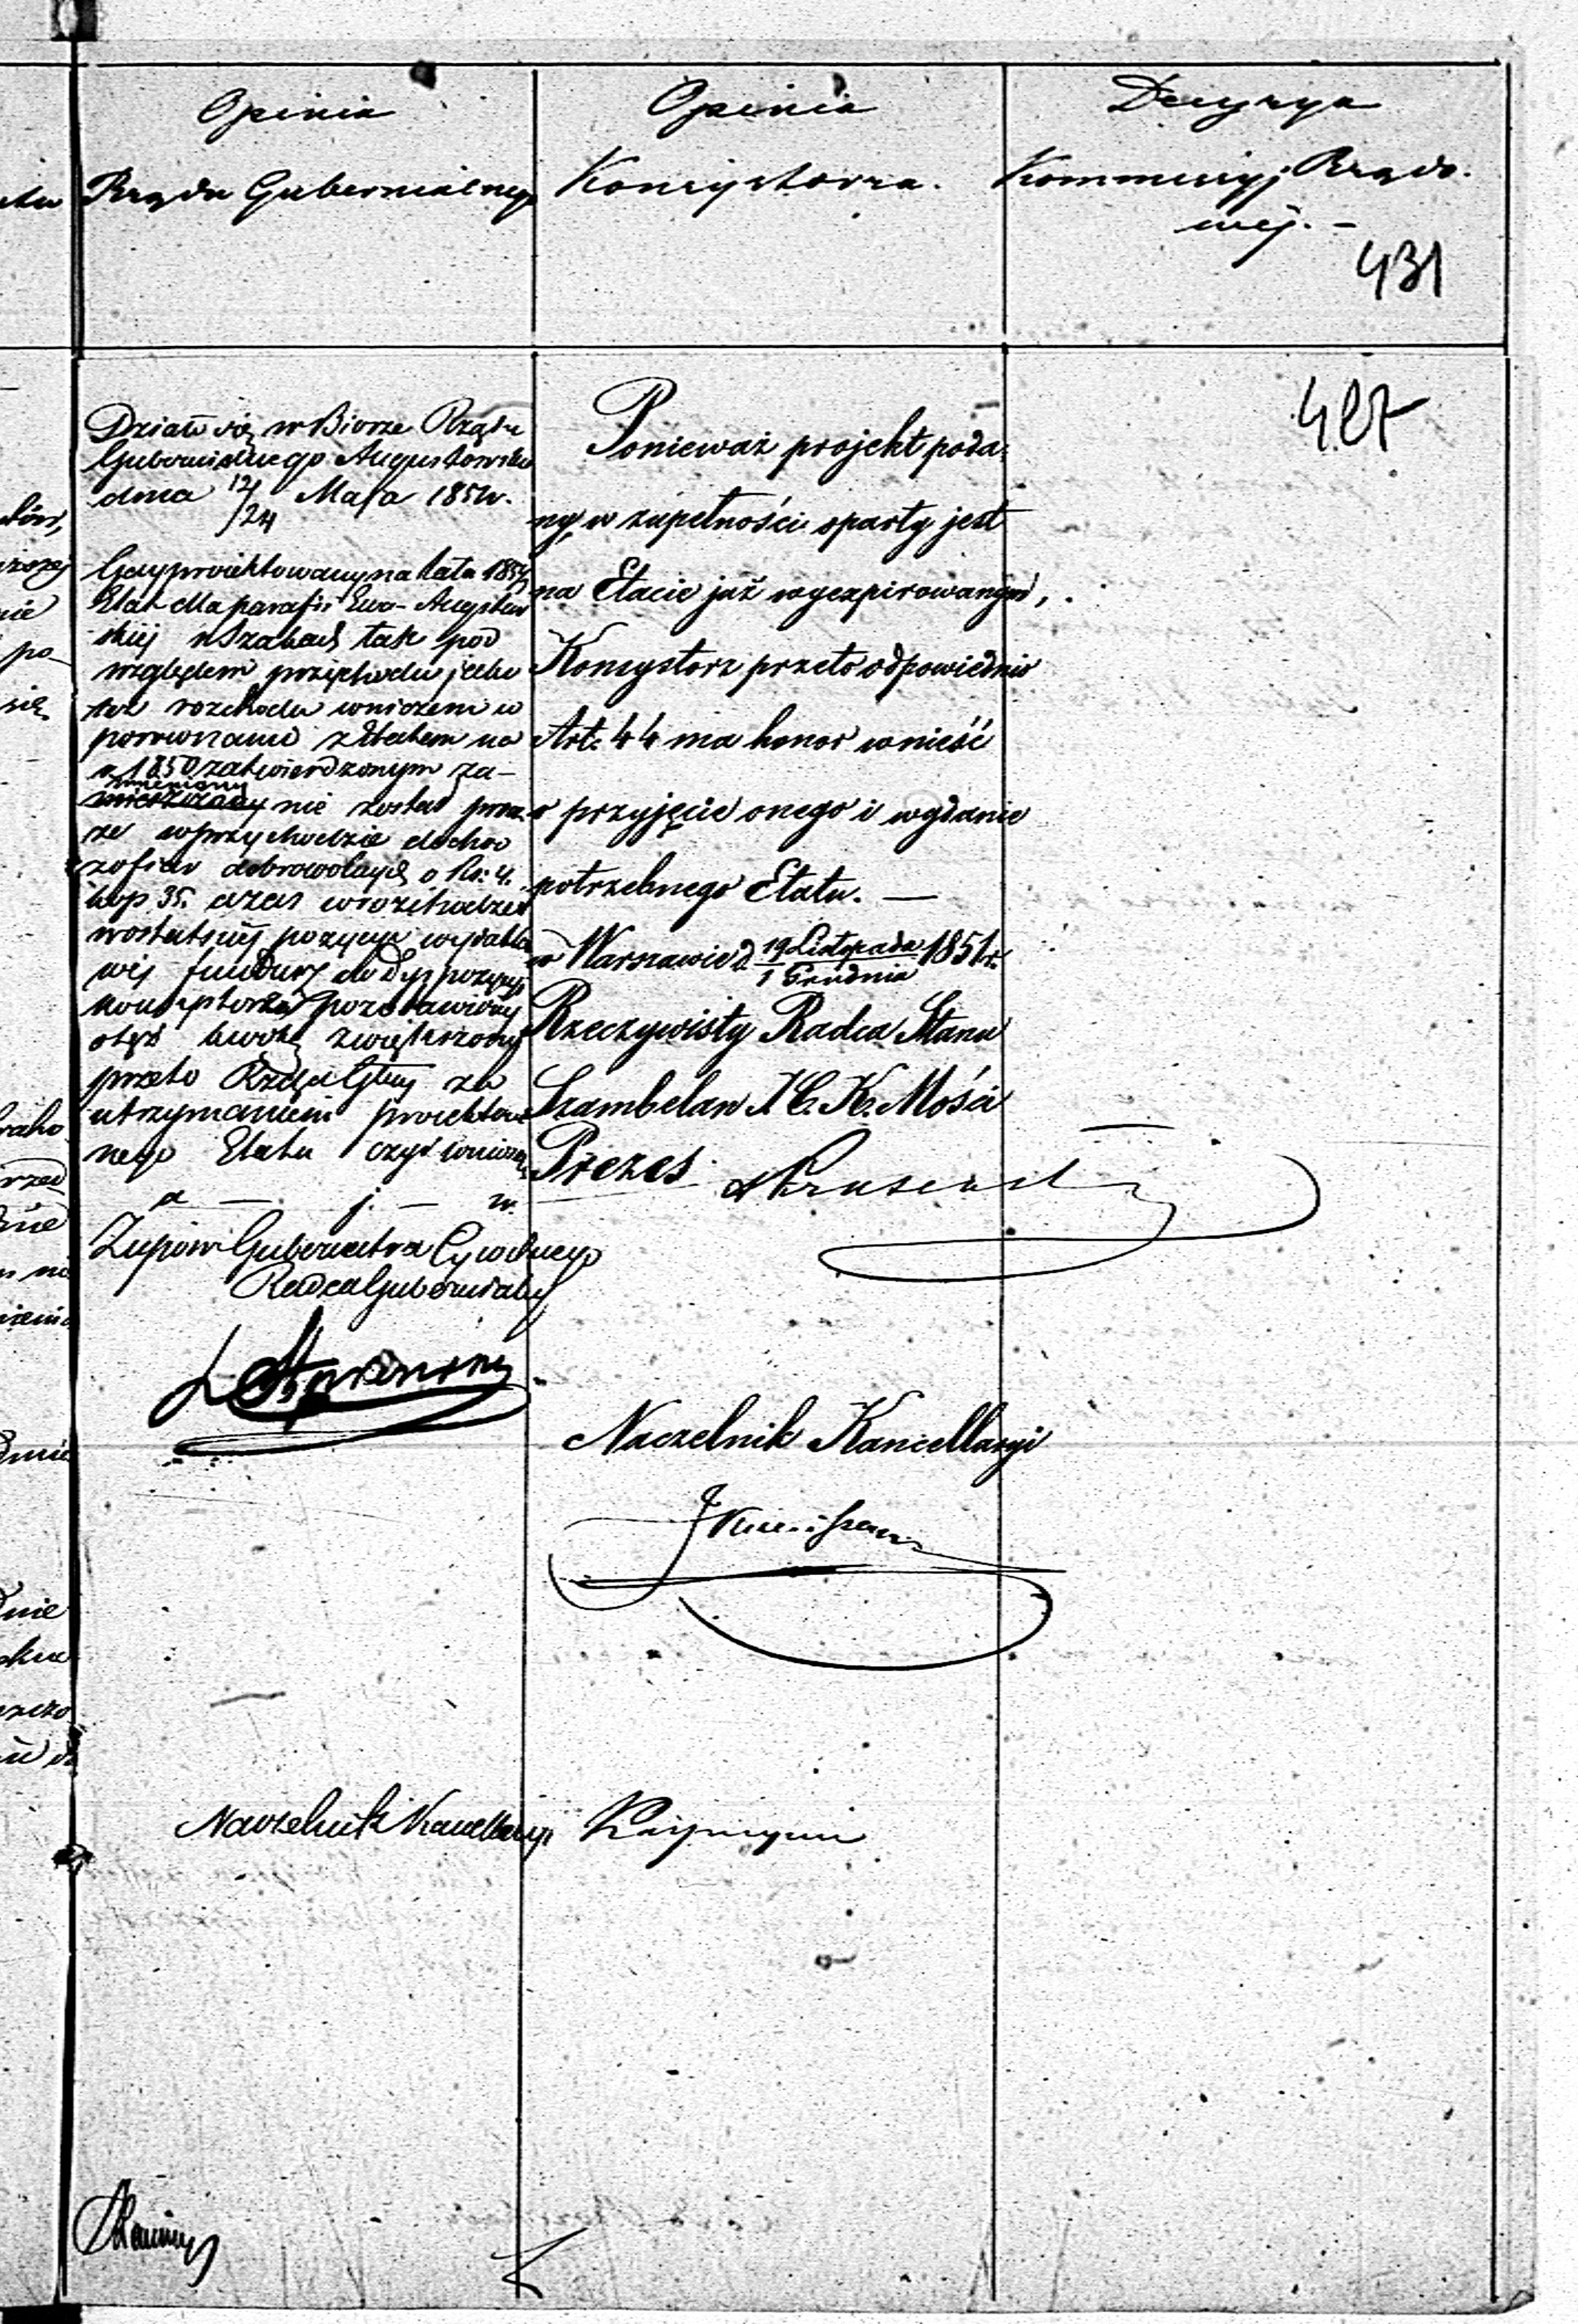 Opinia
Rządu Gubernialnego
Opinia
Konsystorza.
Decyzya
Kommissyj Rządo-
wej. -
431
487
Działo się w Biorze Rządu
Gubernialnego Augustowskie
dnia 12/24 Maja 1851 r.
Gdy proiektowany na lata 185
Etat dla parafii Ewa- Augsbur
skiej w Szakach tak pod
względem przychodu jako
też rozchodu wniczem w
porównaniu z Etatem na
r. 1850 zatwierdzonym za-
mieniony
nie został prócz
że w przychodzie dochod
z ofiar dobrowolnych o Rs: 4.
kop 35. a zaś w rozchodzie
w ostatniej pozycyi wydatko
wej fundusz do Dyspozycyi
Konsystorza pozostawiony
o tęż kwotę zwiększony
przeto Rząd Gbny za
utrzymaniem proiektowa
nego Etatu czyni wniosek
a — j. — w.
Zupow Gubernatora Cywilnego
Radca Gubernialny
Ponieważ projekt poda-
ny, w zupełności oparty jest
na Etacie już wyexpirowanym,
Konsystorz przeto odpowiednio
Art: 44 ma honor wnieść
o przyjęcie onego i wydanie
potrzebnego Etatu. —
w Warszawie d 19 Listopada/1 Grudnia 1851 r.
Rzeczywisty Radca Stanu
Szambelan J. C. K. Mości
Prezes
Naczelnik Kancellaryi
Naczelnik Kancellaryi